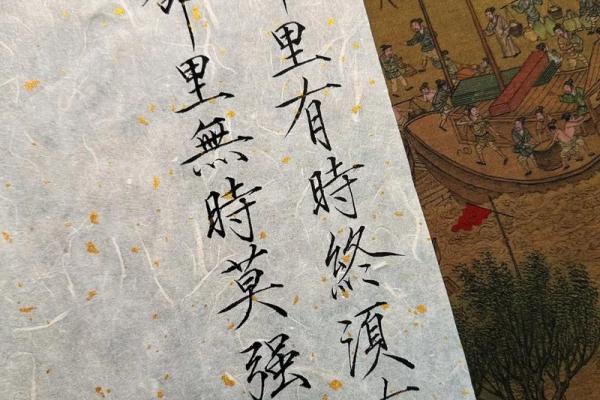 里有時終須
里無時莫强